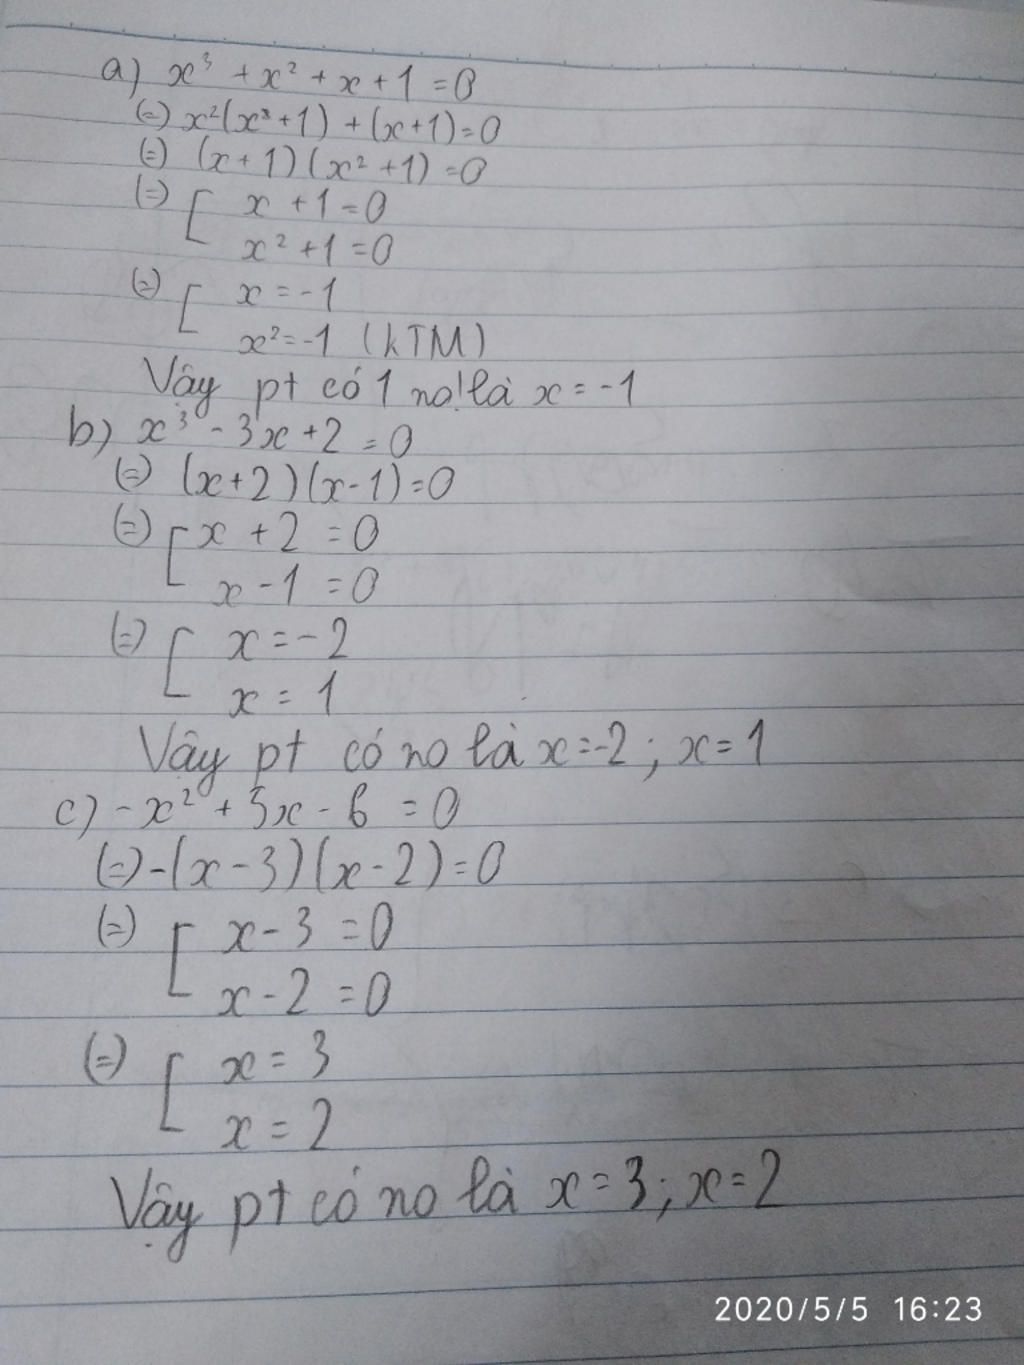 a) x³ + x² + x + 1 = 0
(=) x²(x³+1) + (x+1) = 0
(=) (x+1)(x²+1) = 0
(=) [ x + 1 = 0
x² + 1 = 0
(=) [ x = -1
x² = -1 (kTM)
Vậy pt có 1 no! là x = -1
b) x³ - 3x + 2 = 0
(=) (x+2)(x-1) = 0
(=) [ x + 2 = 0
x - 1 = 0
(=) [ x = -2
x = 1
Vậy pt có no là x = -2 ; x = 1
c) -x² + 5x - 6 = 0
(=) -(x-3)(x-2) = 0
(=) [ x - 3 = 0
x - 2 = 0
(=) [ x = 3
x = 2
Vậy pt có no là x = 3 ; x = 2
2020/5/5 16:23